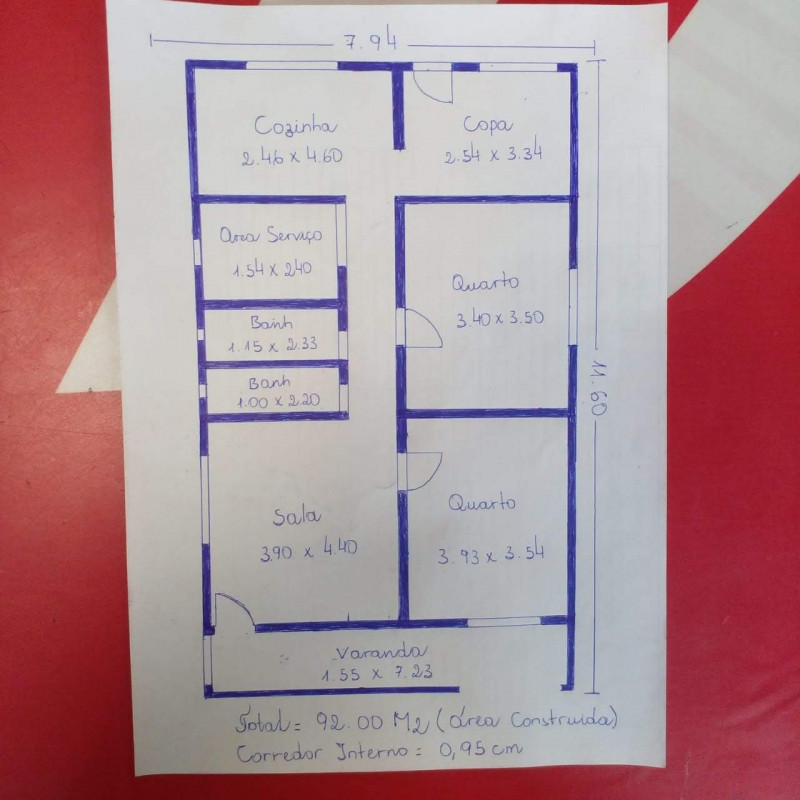 7.94
Cozinha
2.46 x 4.60
Copa
2.54 x 3.34
Area Serviço
1.54 x 240
Quarto
3.40 x 3.50
Banh
1.15 x 2.33
Banh
1.00 x 2.20
11.60
Sala
3.90 x 4.40
Quarto
3.93 x 3.54
Varanda
1.55 x 7.23
Total = 92.00 M2 (área Construida)
Corredor Interno = 0,95 cm